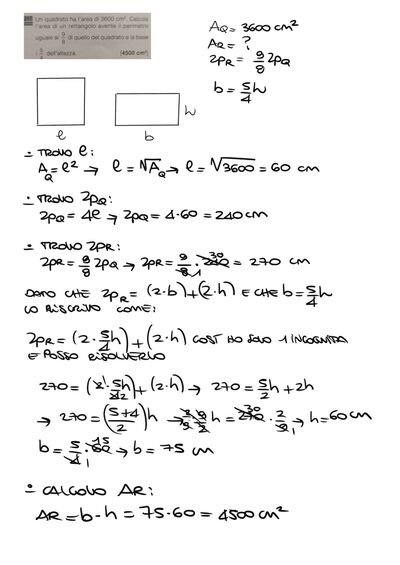 Un quadrato ha l'area di 3600 cm². Calcola
l'area di un rettangolo avente il perimetro
uguale ai 9/8 di quello del quadrato e la base
i 5/4 dell'altezza. (4500 cm²)
AQ = 3600 cm²
AR = ?
2pR = 9/8 2pQ
b = 5/4 h
l
b
h
- TROVO l:
AQ = l² → l = √AQ → l = √3600 = 60 cm
- TROVO 2pQ:
2pQ = 4l → 2pQ = 4·60 = 240 cm
- TROVO 2pR:
2pR = 9/8 2pQ → 2pR = 9/8 · 240 = 270 cm
DATO CHE 2pR = (2·b)+(2·h) E CHE b = 5/4 h
LO RISCRIVO COME:
2pR = (2·5/4 h)+(2·h) COSÌ HO SOLO 1 INCOGNITA
E POSSO RISOLVERLO
270 = (2·5/4 h)+(2·h) → 270 = 5/2 h + 2h
→ 270 = (5+4/2)h → 2/9·9/2 h = 270·2/9 → h = 60 cm
b = 5/4·60 → b = 75 cm
- CALCOLO AR:
AR = b·h = 75·60 = 4500 cm²